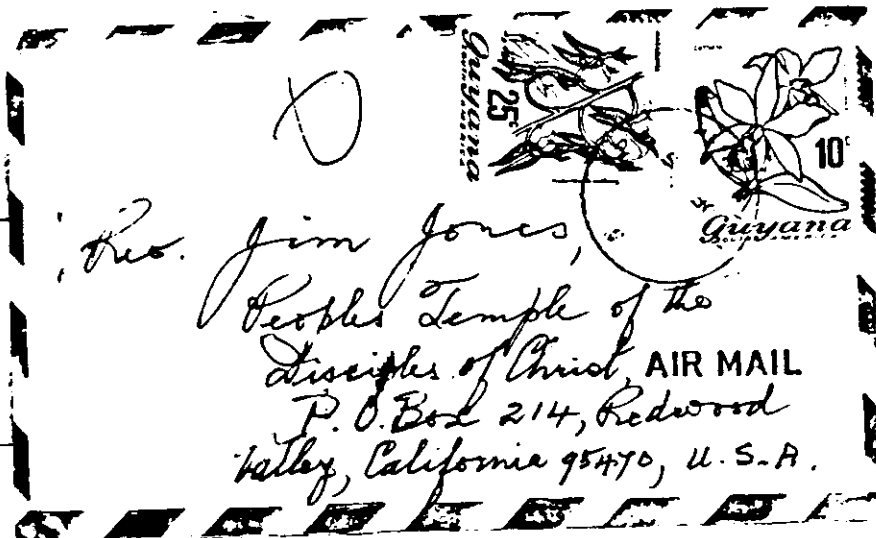 Guyana
25c
10c
Guyana
SOUTH AMERICA
Rev. Jim Jones,
Peoples Temple of the
Disciples of Christ, AIR MAIL
P. O. Box 214, Redwood
Valley, California 95470, U.S.A.